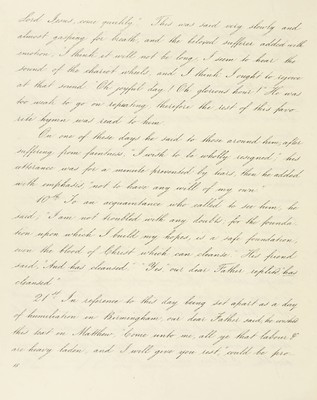 Lord Jesus, come quickly." This was said very slowly and
almost gasping for breath, and the beloved sufferer added with
emotion, "I think it will not be long; I seem to hear the
sound of the chariot wheels, and I think I ought to rejoice
at that sound. Oh, joyful day! Oh, glorious hour!" He was
too weak to go on repeating, therefore the rest of this favo-
rite hymn was read to him.
On one of these days he said to those around him, after
suffering from faintness, "I wish to be wholly resigned;" his
utterance was for a minute prevented by tears, then he added
with emphasis, "not to have any will of my own."
10th To an acquaintance who called to see him, he
said, "I am not troubled with any doubts, for the founda-
tion upon which I build my hopes, is a safe foundation,
even the blood of Christ which can cleanse." His friend
said, "And has cleansed." "Yes, our dear Father replied, has
cleansed."
21st In reference to this day being set apart as a day
of humiliation in Birmingham, our dear Father said, he wished
this text in Matthew, "Come unto me, all ye that labour &
are heavy laden, and I will give you rest," could be pro-